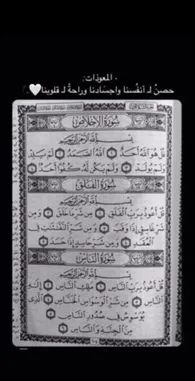 - المعوذات:
حصنٌ لـ أنفُسنا واجسَادنا وراحةٌ لـ قلوبنا🤍
سُورَةُ الإِخْلَاصِ
بِسْمِ اللَّهِ الرَّحْمَٰنِ الرَّحِيمِ
قُلْ هُوَ اللَّهُ أَحَدٌ ۝ اللَّهُ الصَّمَدُ ۝ لَمْ يَلِدْ
وَلَمْ يُولَدْ ۝ وَلَمْ يَكُن لَّهُ كُفُوًا أَحَدٌ ۝
سُورَةُ الْفَلَقِ
بِسْمِ اللَّهِ الرَّحْمَٰنِ الرَّحِيمِ
قُلْ أَعُوذُ بِرَبِّ الْفَلَقِ ۝ مِن شَرِّ مَا خَلَقَ ۝ وَمِن
شَرِّ غَاسِقٍ إِذَا وَقَبَ ۝ وَمِن شَرِّ النَّفَّاثَاتِ فِي
الْعُقَدِ ۝ وَمِن شَرِّ حَاسِدٍ إِذَا حَسَدَ ۝
سُورَةُ النَّاسِ
بِسْمِ اللَّهِ الرَّحْمَٰنِ الرَّحِيمِ
قُلْ أَعُوذُ بِرَبِّ النَّاسِ ۝ مَلِكِ النَّاسِ ۝ إِلَٰهِ
النَّاسِ ۝ مِن شَرِّ الْوَسْوَاسِ الْخَنَّاسِ ۝ الَّذِي
يُوَسْوِسُ فِي صُدُورِ النَّاسِ ۝
مِنَ الْجِنَّةِ وَالنَّاسِ ۝